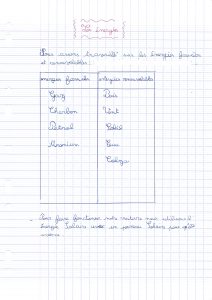 Les énergies
Nous avons travaillé sur les énergies fossiles
et renouvelables.
énergies fossiles énergies renouvelables
Gaz Bois
Charbon Vent
Pétrole Soleil
Uranium Eau
Colza
- Pour faire fonctionner notre voiture nous utilisons l'
énergie solaire avec un panneau solaire pour